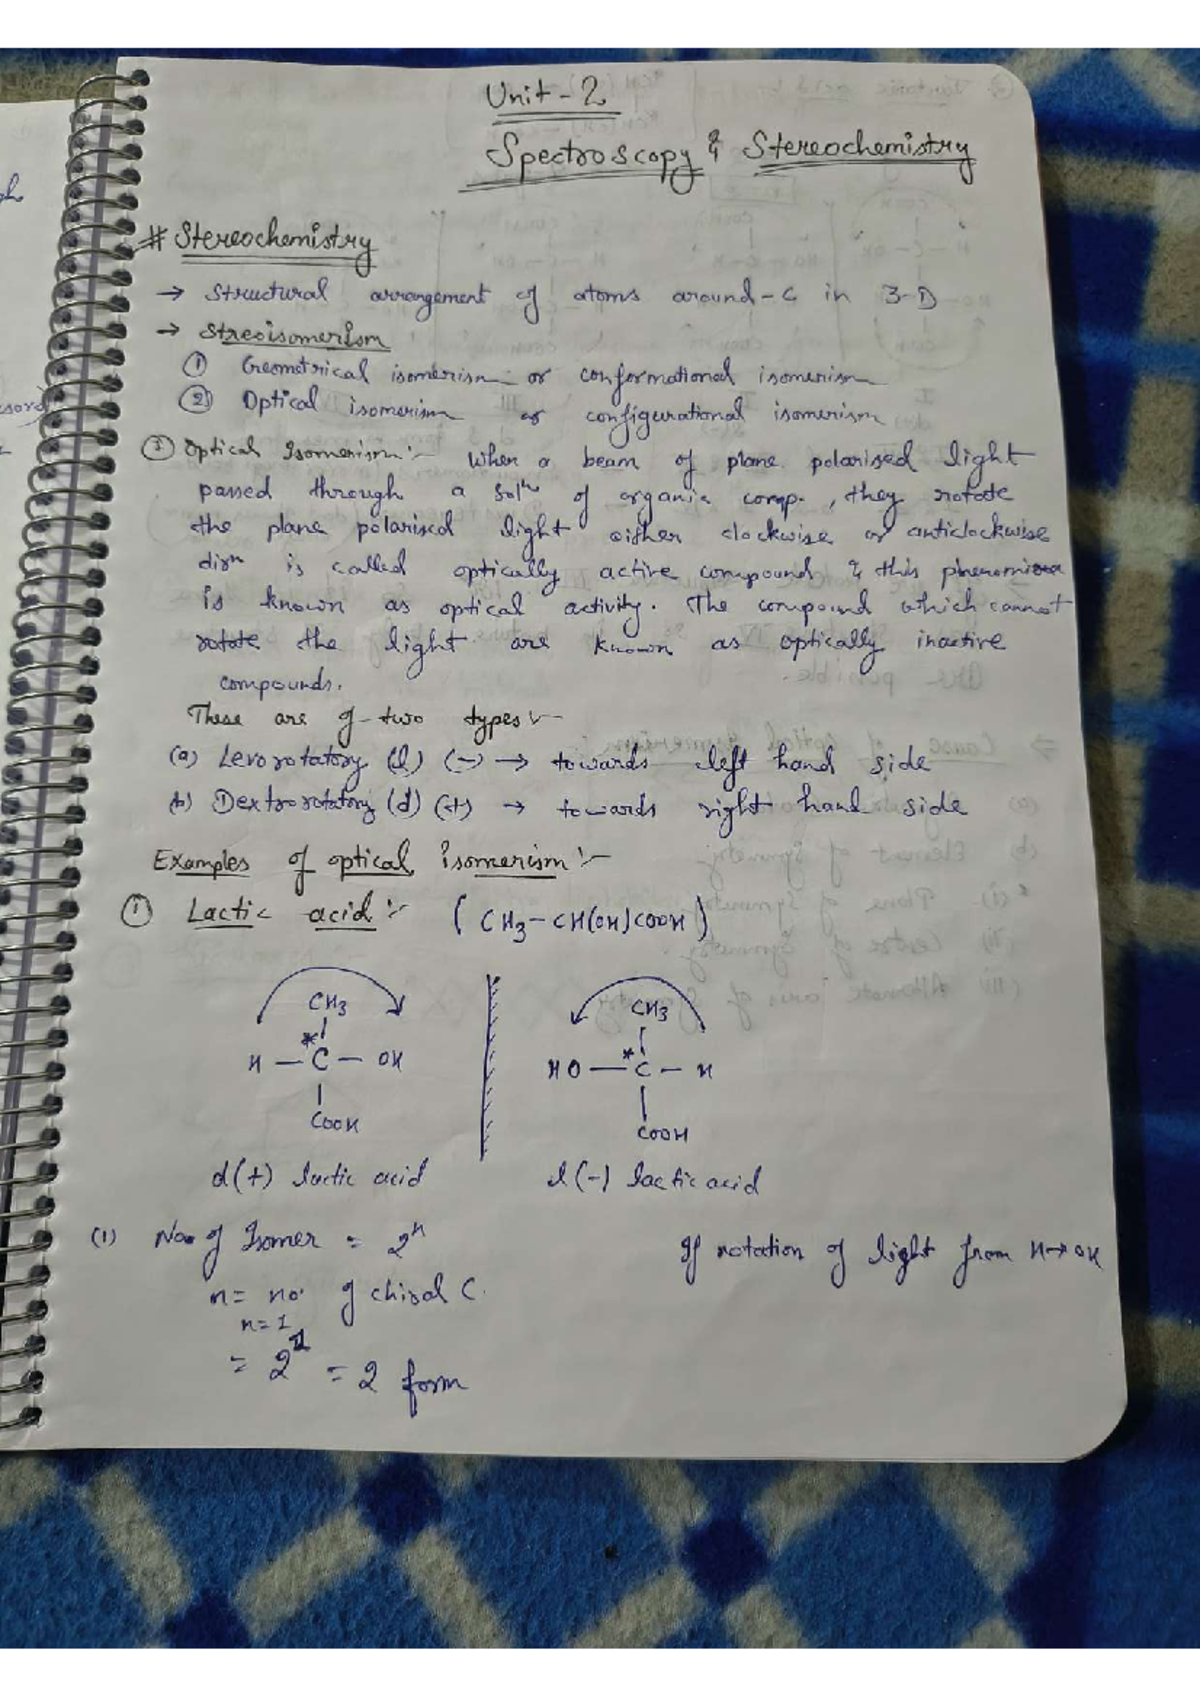 Unit-2
Spectroscopy & Stereochemistry
# Stereochemistry
→ Structural arrangement of atoms around-C in 3-D
→ Streoisomerism
① Geometrical isomerism or conformational isomerism
② Optical isomerism or configurational isomerism
① Optical Isomerism :- When a beam of plane polarised light
passed through a solⁿ of organic comp., they rotate
the plane polarised light either clockwise or anticlockwise
dirⁿ is called optically active compound & this phenomena
is known as optical activity. The compound which cannot
rotate the light are known as optically inactive
compounds.
These are of two types :-
(a) Levorotatory (l) (-) → towards left hand side
(b) Dextrorotatory (d) (+) → towards right hand side
Examples of optical isomerism :-
① Lactic acid :- (CH3-CH(OH)COOH)
CH3 CH3
H — C* — OH HO — C* — H
COOH COOH
d(+) lactic acid l(-) lactic acid
(1) No. of Isomer = 2ⁿ If rotation of light from H→OH
n = no. of chiral C.
n=1
= 2¹ = 2 form